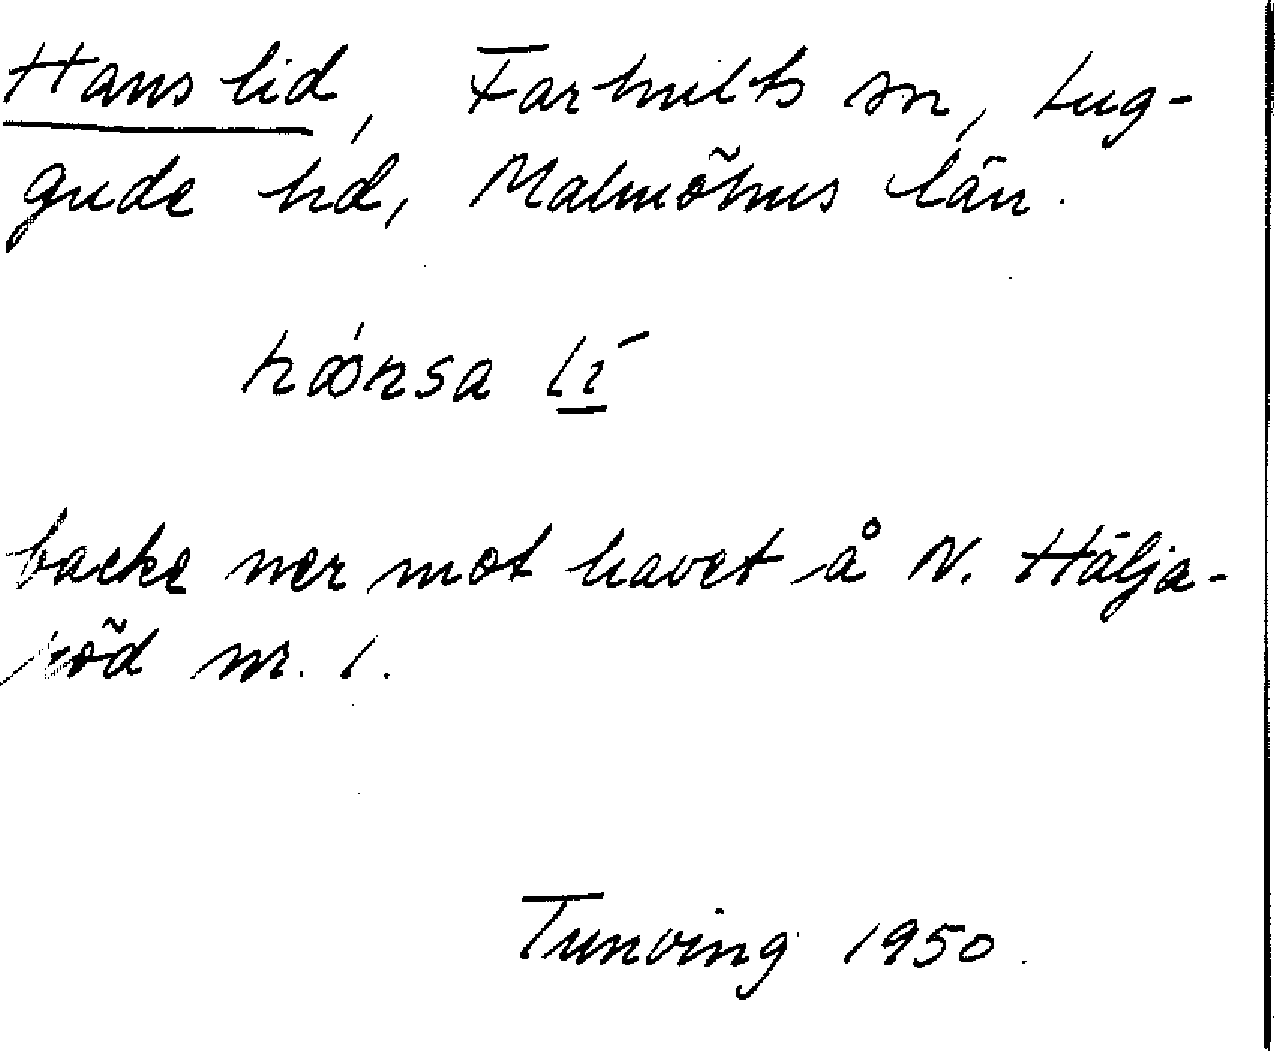 Hans lid, Farhults sn, Lug-
gude hd, Malmöhus län.
hǻnsa lí
backe ner mot havet å N. Hälja-
röd nr. 1.
Tunving 1950.